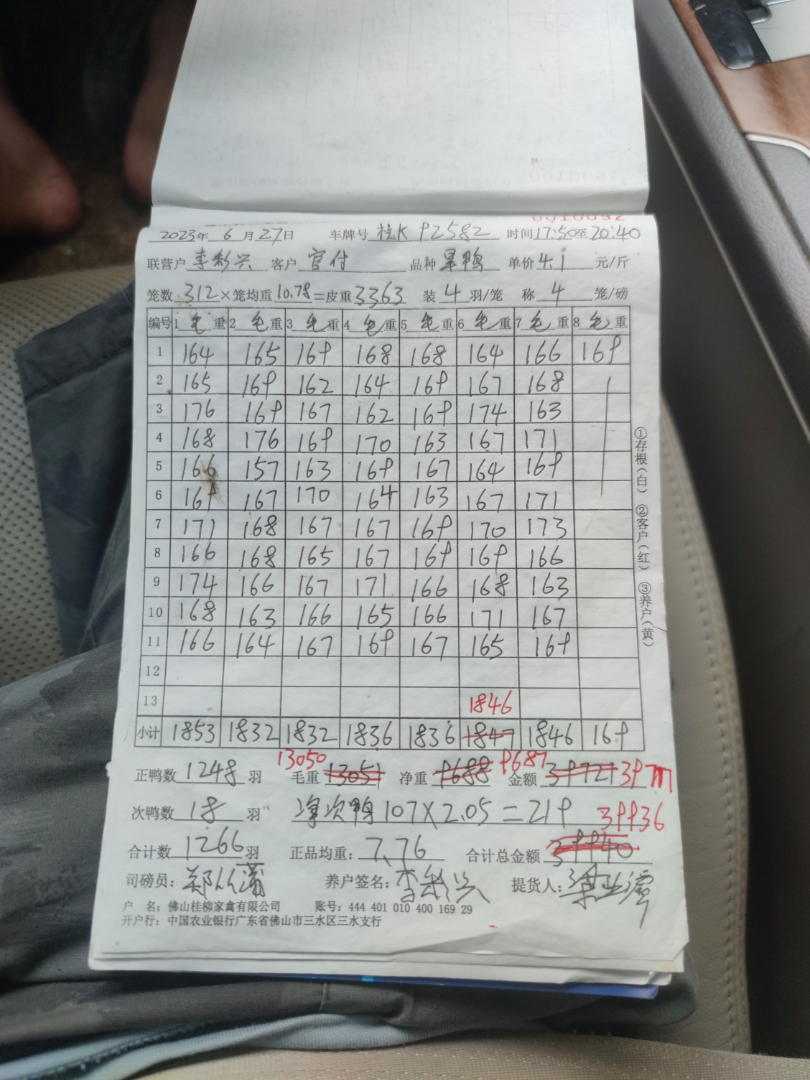 2023年 6 月 27日 车牌号 桂K P2582 时间17:50至20:40
联营户 李彩兴 客户 官付 品种 单价 4.1 元/斤
笼数 312×笼均重 10.78=皮重 3363 装 4 羽/笼 称 4 笼/磅
编号 1 毛重 2 毛重 3 毛重 4 毛重 5 毛重 6 毛重 7 毛重 8 毛重
1 164 165 169 168 168 164 166 169
2 165 169 162 164 169 167 168
3 176 169 167 162 169 174 163
4 168 176 169 170 163 167 171
5 166 157 163 169 167 164 169
6 169 167 170 164 163 167 171
7 171 168 167 167 169 170 173
8 166 168 165 167 169 169 166
9 174 166 167 171 166 168 163
10 168 163 166 165 166 171 167
11 166 164 167 169 167 165 169
12
13 1846
小计 1853 1832 1832 1836 1836 1847 1846 169
13050 9687
正鸭数 1248 羽 毛重 13051 净重 9688 金额 39721
次鸭数 18 羽 净次鸭 107×2.05=219 39936
合计数 1266 羽 正品均重: 7.76 合计总金额 39940
司磅员: 养户签名: 李彩兴 提货人:
户 名: 佛山桂柳家禽有限公司 账号: 444 401 010 400 169 29
开户行: 中国农业银行广东省佛山市三水区三水支行
①存根(白) ②客户(红) ③养户(黄)